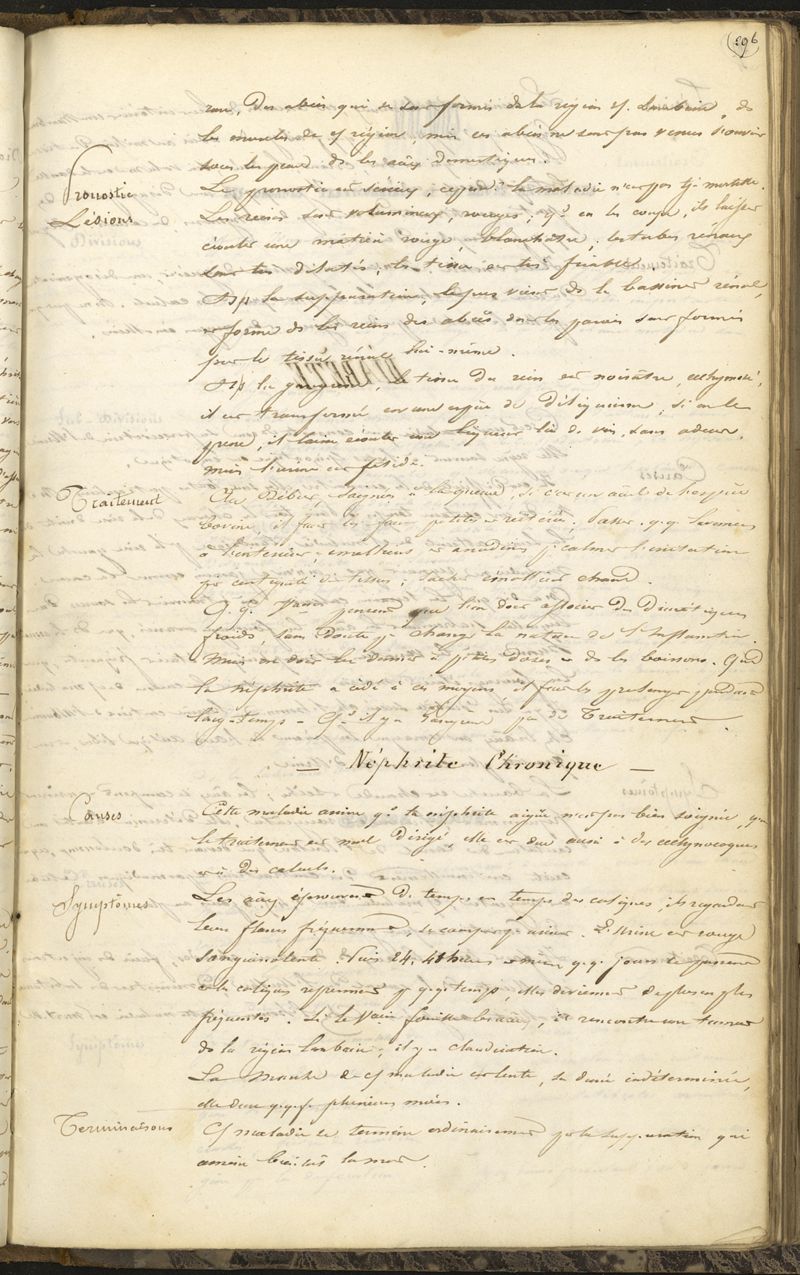 296
rare. Des abcès qui se sont formés dans la région lombaire, ds
les muscles de cette région, mais ces abcès ne sont pas venus s'ouvrir
sous la peau de les anx domestiques.
Pronostic Le pronostic est sérieux, cepend la maladie n'est pas mortelle.
Lésions Les reins sont volumineux, rouges, qd on les coupe, ils laissent
écouler une matière rouge, blanchâtre, les tubes rénaux
sont très dilatés, le tissu est très friable.
Ap la suppuration, le pus vient ds le bassinet rénal,
et forme ds les reins des abcès dont les parois sont formées
par le tissu rénal lui-même.
Ap la gangrène, le tissu du rein est noirâtre, ecchymosé,
il est transformé en une espèce de déliquium, si on le
presse, il laisse écouler une liqueur lie de vin, sans odeur,
mais l'urine est fétide.
Traitement Au début, saignée à la queue, si c'est un anl de l'espèce
bovine, il faut les faire petites et réitérées. Passer q.q. lavemens
à l'intérieur, émolliens et anodins pr calmer l'irritation
par contiguité de tissus, sachet émollient chaud.
Q. q. pensent que l'on doit associer des Diurétiques
froids, sans doute pr changer la nature de l'inflammation.
Mais on doit les donner à petites doses et ds les boissons. Qud
la néphrite a cédé à ces moyens, il faut les prolonger pendant
long-temps. Qd il y a gangrène pas de Traitement.
— Néphrite Chronique —
Causes Cette maladie arrive qd la néphrite aigüe n'est pas bien soignée, que
le traitement est mal dirigé, elle est due aussi à des
et à des calculs.
Symptômes Les anx éprouvent de temps en temps des coliques, ils regardent
leur flanc fréquemment, se campent pr uriner. L'Urine est rouge
sanguinolente. Puis 24, 48 heures et même q.q. jours se passent
et les coliques reprennent pr q.q. temps, elles deviennent de plus en plus
fréquentes. Si le Vétre fouille les anx, il rencontre une tumeur
ds la région lombaire, il y a claudication.
La marche de cette maladie est lente, sa durée indéterminée,
elle dure q.q.f. plusieurs mois.
Terminaisons Cette maladie se termine ordinairement par la suppuration qui
amène bientôt la mort.